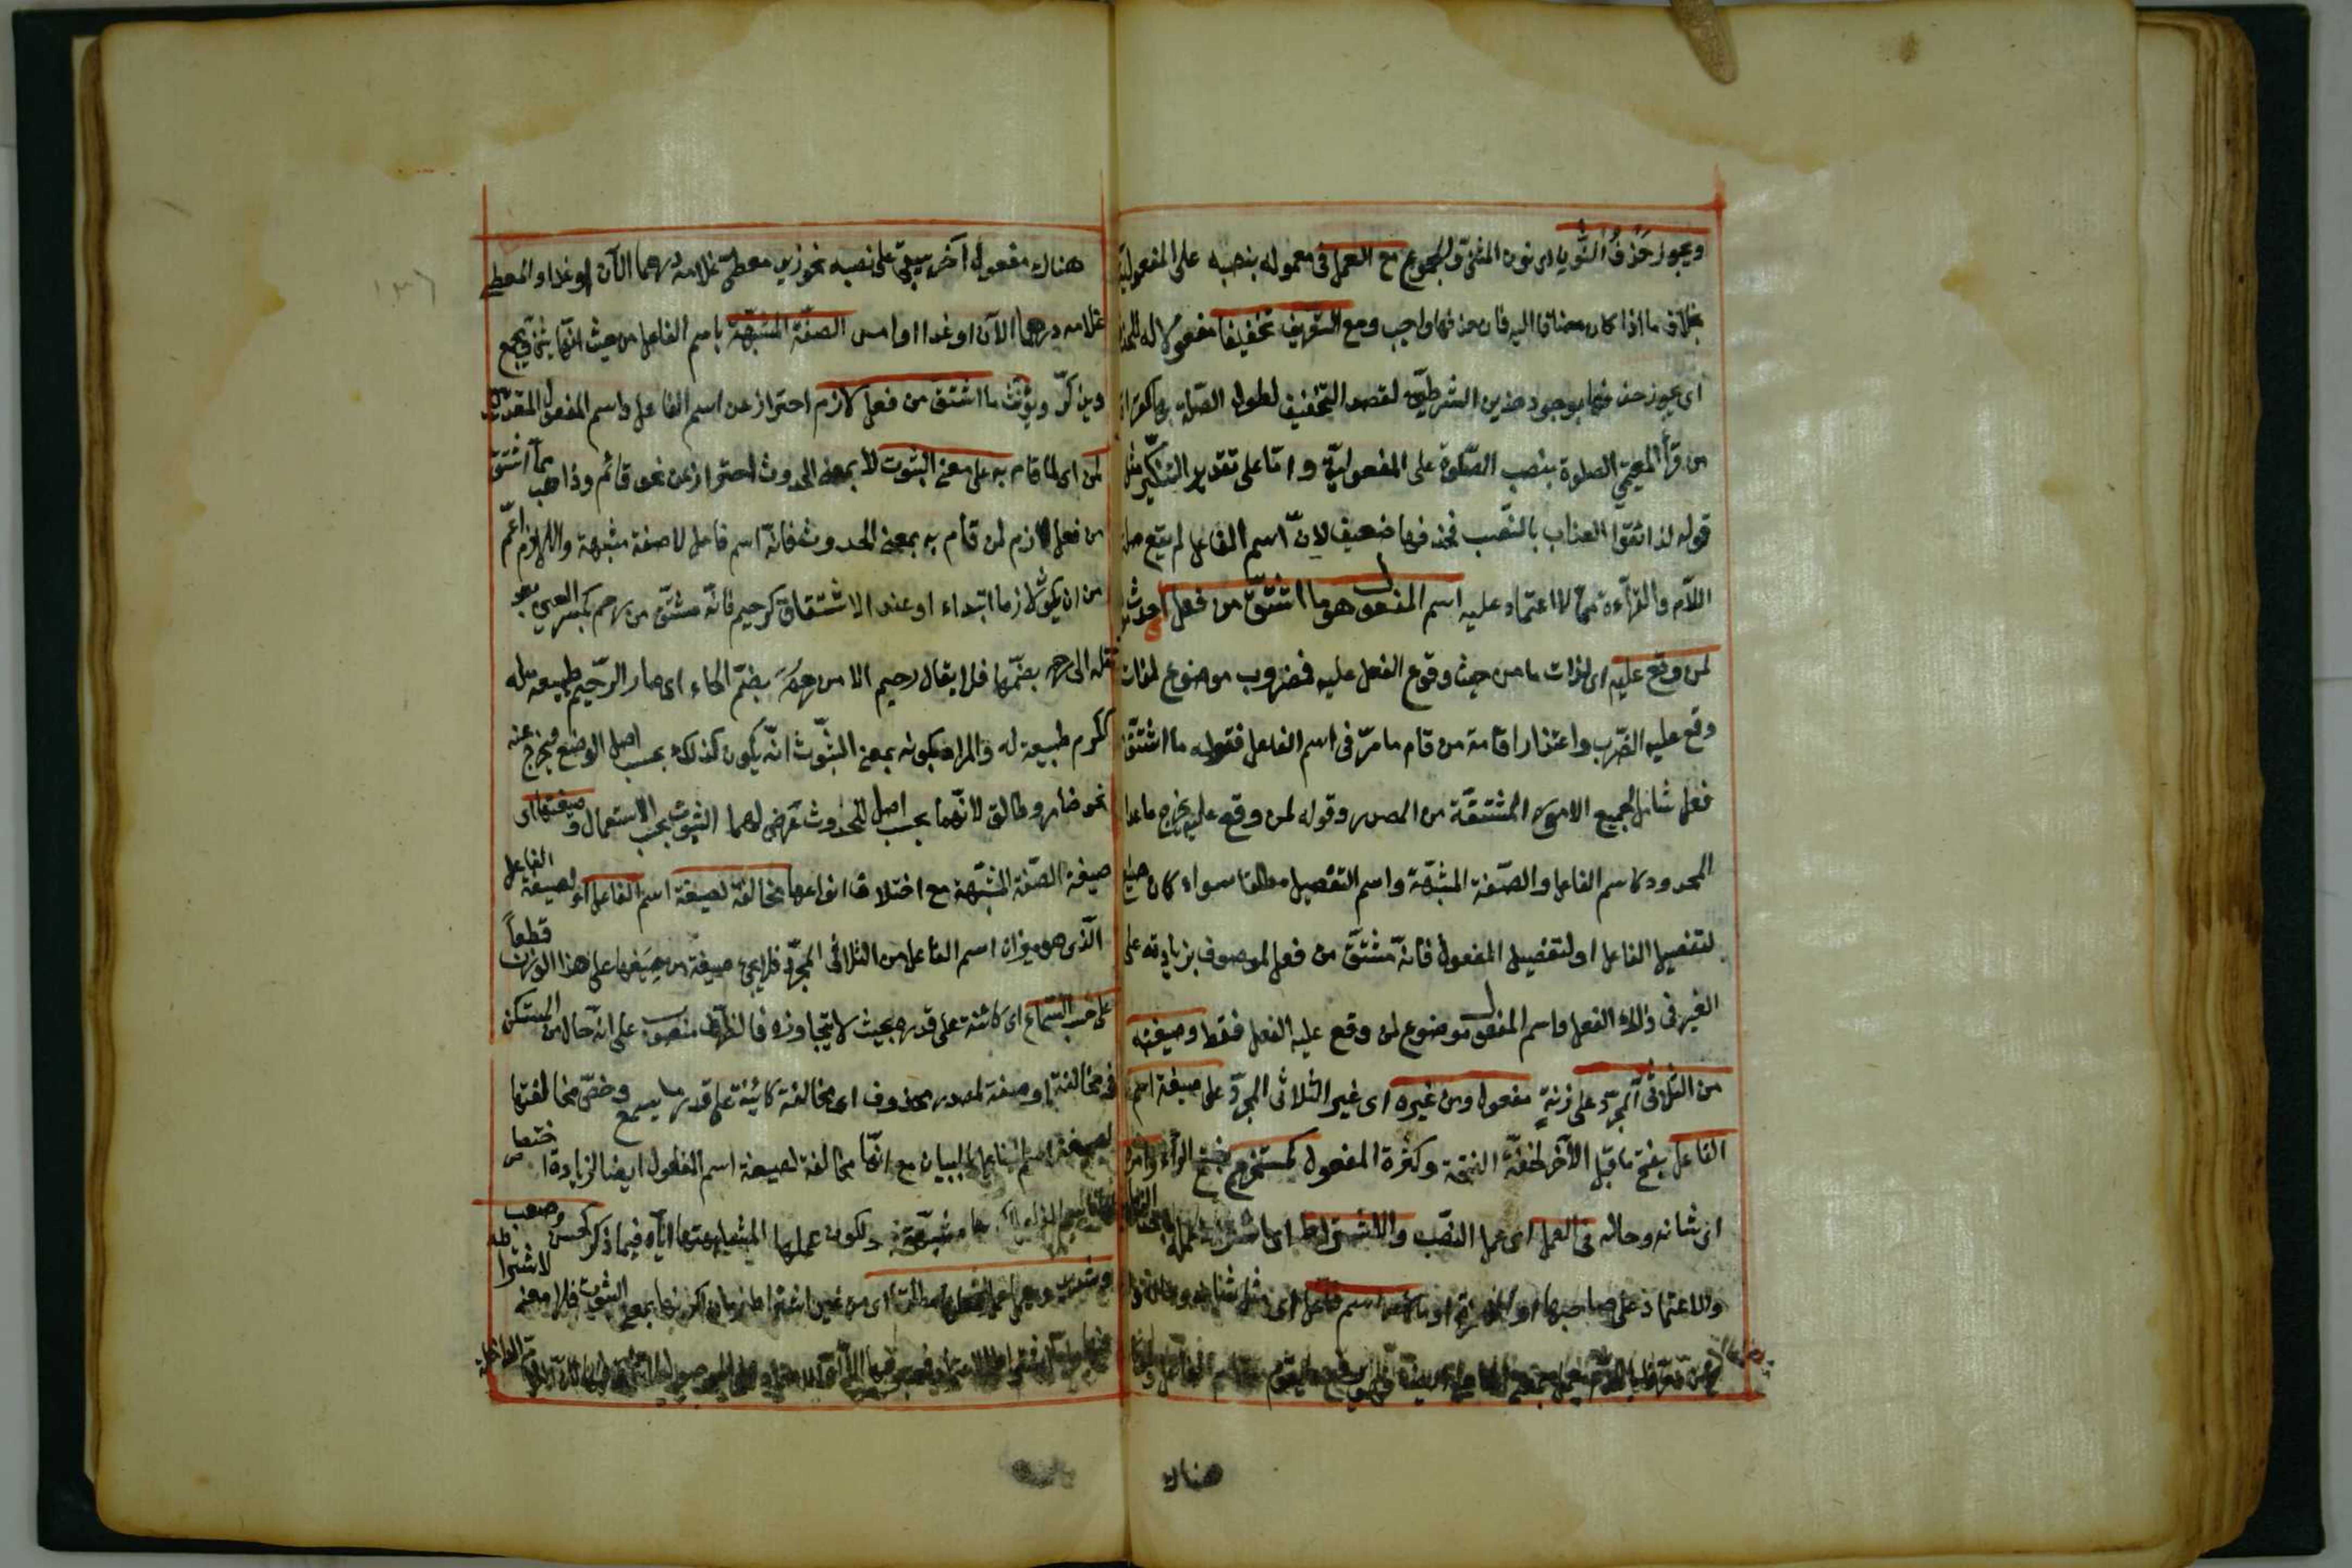 ويجوز حذف النون اى نون المثنى والمجموع مع العمل فى معموله بنصبه على المفعولية
بخلاف ما اذا كان مضافا اليه فان حذفها واجب ومع التعريف تخفيفا مفعول له للحذف
اى يجوز حذفها بوجود هذين الشرطين لقصد التخفيف لطول الصلة بها كقراءة
من قرأ المقيمى الصلوة بنصب الصلوة على المفعولية واما على تقدير التنكير مثل
قوله لذائقوا العذاب بالنصب فحذفها ضعيف لان اسم الفاعل لم يقع صلة
اللام والقراءة مما لا اعتماد عليه اسم المفعول هو ما اشتق من فعل
لمن وقع عليه اى لذات ما من حيث وقوع الفعل عليه فمضروب موضوع لذات
وقع عليه الضرب واعتذار اقامة من قام ما مر فى اسم الفاعل فقوله ما اشتق
فعل شامل لجميع الامور المشتقة من المصدر وقوله لمن وقع عليه يخرج ما عدا
المحدود كاسم الفاعل والصفة المشبهة واسم التفضيل مطلقا سواء كان صيغ
لتفضيل الفاعل او لتفضيل المفعول فانه مشتق من فعل لموصوف بزيادته على
الغير فى ذلك الفعل واسم المفعول موضوع لمن وقع عليه الفعل فقط وصيغته
من الثلاثى المجرد على زنة مفعول ومن غيره اى غير الثلاثى المجرد على صيغة اسم
الفاعل بفتح ما قبل الآخر لخفة الفتحة وكثرة المفعول كمستخرج بفتح الراء وامره
اى شانه وحاله فى العمل اى عمل النصب والاشتراط اى اشتراط عمله
والاعتماد على صاحبه او الهمزة او ما كامر اسم الفاعل اى مثل شانه
هناك
هناك مفعول آخر يبقى على نصبه نحو زيد معطى غلامه درهما الآن او غدا او المعطى
غلامه درهما الآن او غدا او امس الصفة المشبهة باسم الفاعل من حيث انها يثنى ويجمع
ويذكر ويؤنث ما اشتق من فعل لازم احتراز عن اسم الفاعل واسم المفعول المتعديين
لمن اى لما قام به على معنى الثبوت لا بمعنى الحدوث احتراز عن نحو قائم وذاهب مما اشتق
من فعل لازم لمن قام به بمعنى الحدوث فانه اسم فاعل لا صفة مشبهة واللازم اعم
من ان يكون لازما ابتداء او عند الاشتقاق كرحيم فانه مشتق من رحم بكسر العين بعد
نقله الى رحم بضمها فلا يقال رحيم الا من رحم بضم الحاء اى صار الرحيم طبيعة له
ككرم طبيعة له والمراد بكونه بمعنى الثبوت انه يكون كذلك بحسب اصل الوضع فيخرج عنه
نحو ضامر وطالق لانهما بحسب اصل للحدوث عرض لهما الثبوت بحسب الاستعمال وصيغتها اى
صيغة الصفة المشبهة مع اختلاف انواعها مخالفة لصيغة اسم الفاعل او لصيغة الفاعل
الذى هو ميزان اسم الفاعل من الثلاثى المجرد فلا يجئ صيغة من صيغها على هذا الوزن قطعا
على حسب السماع اى كائنة على قدره بحيث لا يتجاوزه فالظرف منصوب على انه حال من المستكن
فى مخالفة او صفة لمصدر محذوف اى مخالفة كائنة على قدر ما يسمع وخص مخالفتها
لصيغة اسم الفاعل بالبيان مع انها مخالفة لصيغة اسم المفعول ايضا لزيادة اختصاص
ولكون عملها لمشابهتها اياه فيما ذكر كحسن وصعب
وشديد وتعمل عمل فعلها مطلقا اى من غير اشتراط زمان لكونها بمعنى الثبوت فلا معنى لاشتراطه
١٣٦